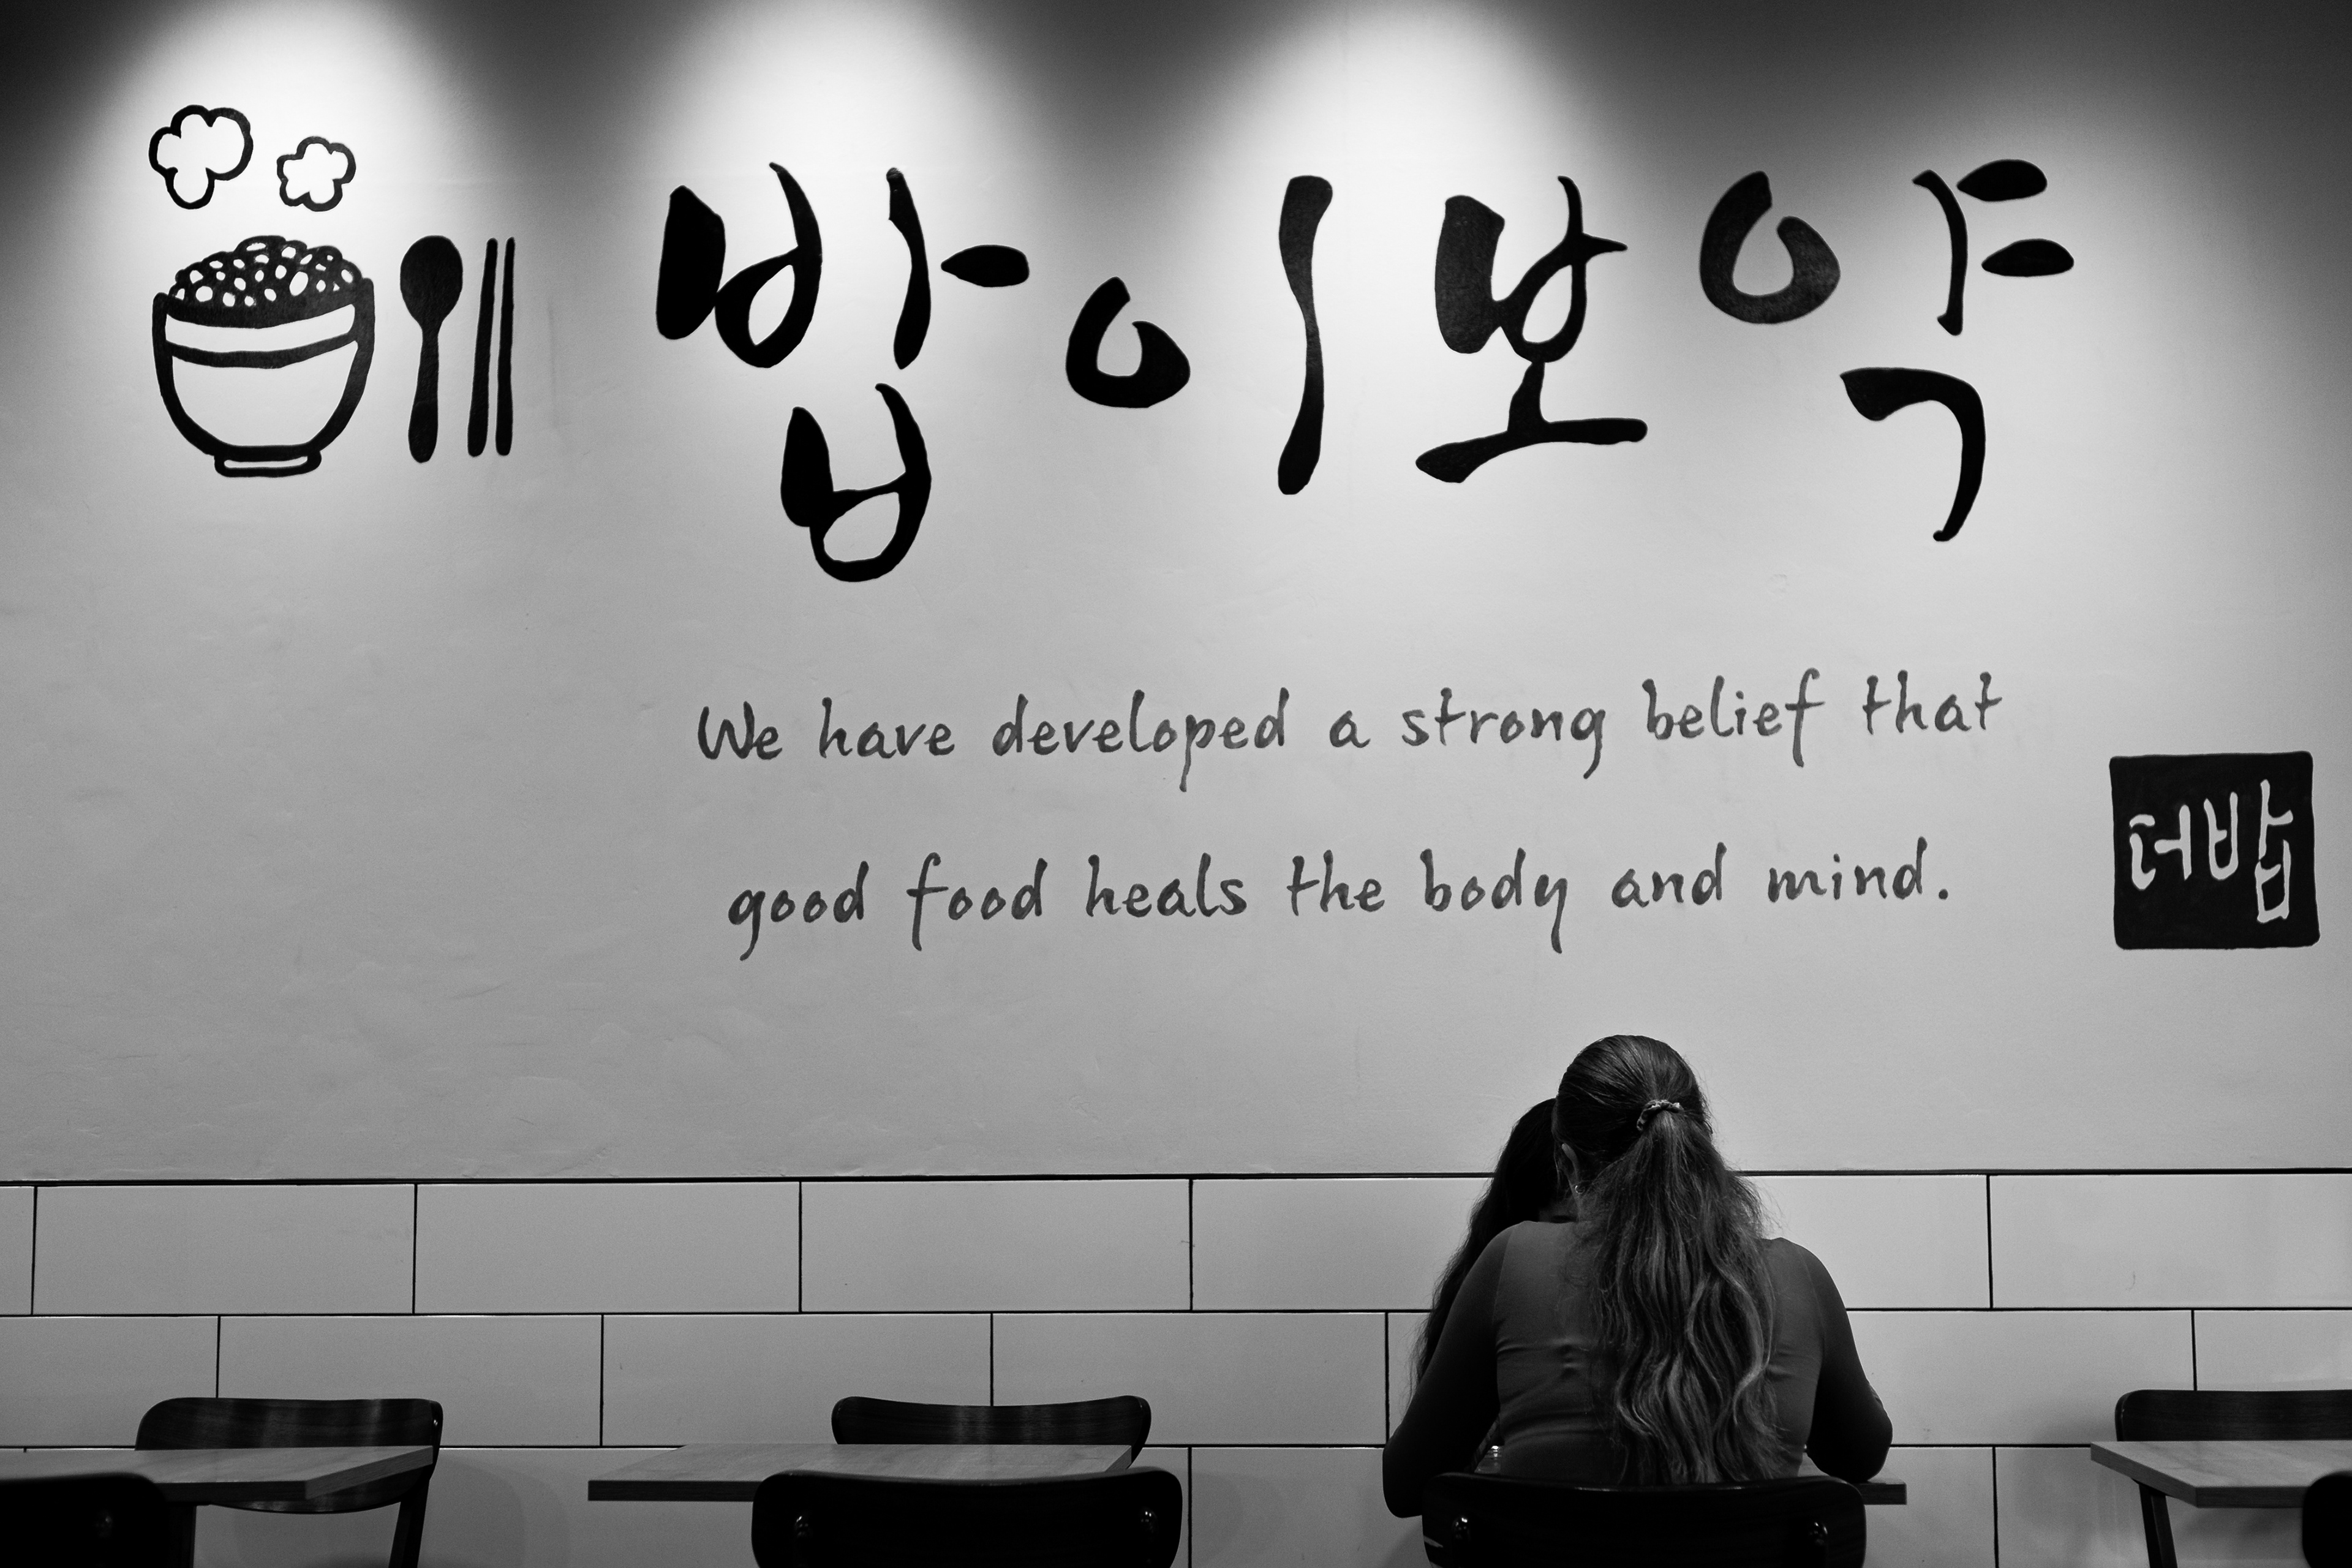 밥이보약
We have developed a strong belief that
good food heals the body and mind.
더밥